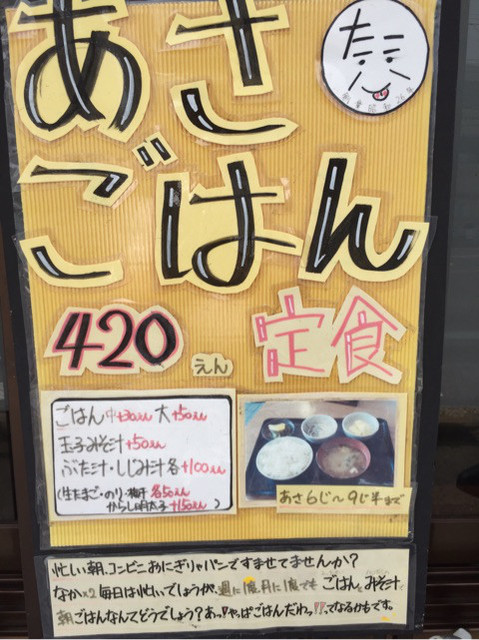 あさ
ごはん
420えん 定食
創業昭和26年
ごはん 中+30えん 大+50えん
玉子みそ汁+50えん
ぶた汁・しじみ汁各+100えん
(生たまご・のり・梅干 各50えん
からし明太子+150えん)
あさ6じ〜9じ半まで
忙しい朝、コンビニおにぎりやパンですませてませんか?
なか×2毎日は忙いでしょうが、週に1度、月に1度でもごはんとみそ汁
朝ごはんなんてどうでしょう?あっ!!やっぱごはんだわっ!!ってなるかもです。